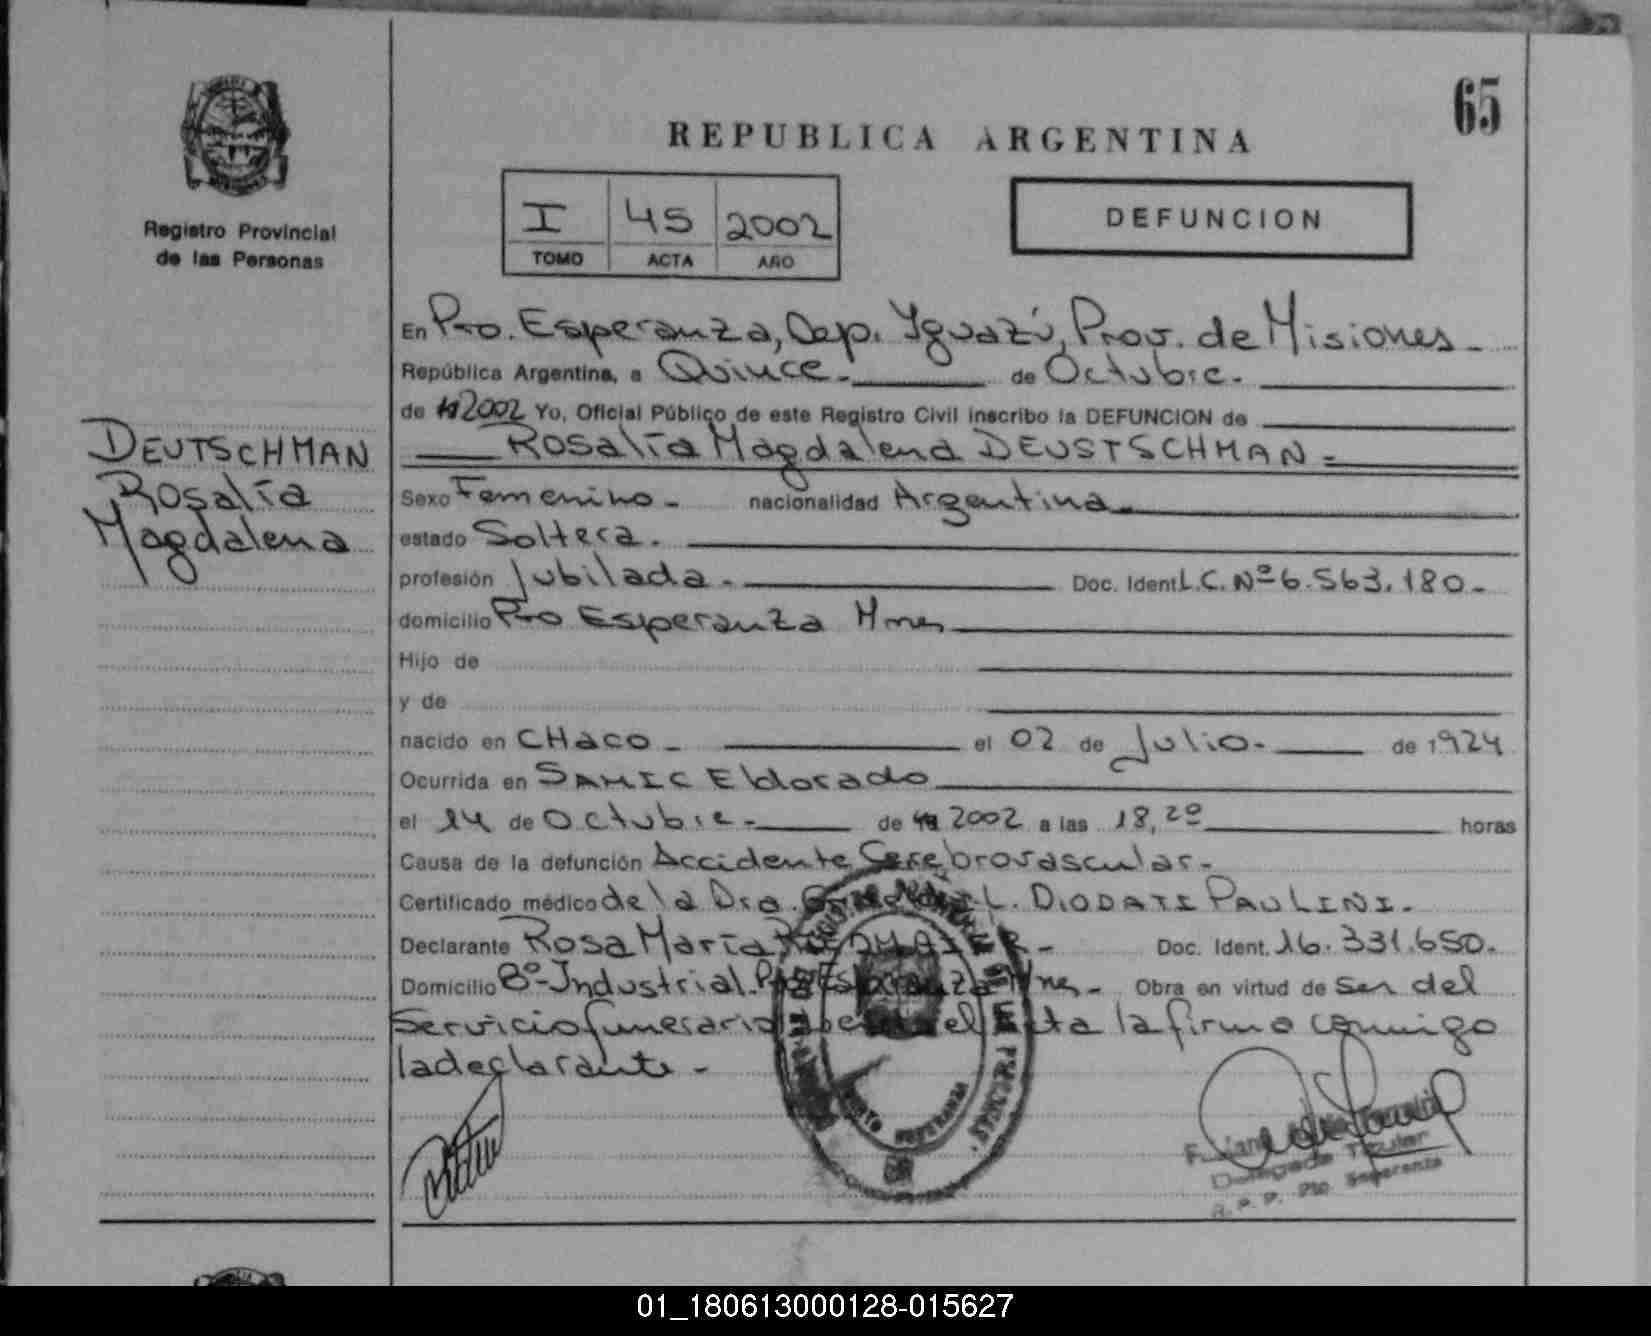 65
REPUBLICA ARGENTINA
Registro Provincial
de las Personas
I 45 2002
TOMO ACTA AÑO
DEFUNCION
En Pto. Esperanza, Dep. Iguazú, Prov. de Misiones.
República Argentina, a Quince. de Octubre.
de 2002 Yo, Oficial Público de este Registro Civil inscribo la DEFUNCION de
Rosalía Magdalena DEUSTSCHMAN
DEUTSCHMAN
Rosalía
Magdalena
Sexo Femenino. nacionalidad Argentina
estado Soltera.
profesión Jubilada. Doc. Ident. L.C. Nº 6.563.180.
domicilio Pto Esperanza Mnes
Hijo de
y de
nacido en CHACO el 02 de Julio. de 1924
Ocurrida en SAMIC Eldorado
el 14 de Octubre. de 2002 a las 18,20 horas
Causa de la defunción Accidente Cerebrovascular.
Certificado médico de la Dra. L. DIODATI PAULINI.
Declarante Rosa María Doc. Ident. 16.331.650.
Domicilio Bº Industrial. Pto Esperanza Mnes. Obra en virtud de ser del
Servicio funerario el Acta la firma conmigo
la declarante.
MISIONES
Delegada Titular
R. P. P. Pto. Esperanza
01_180613000128-015627